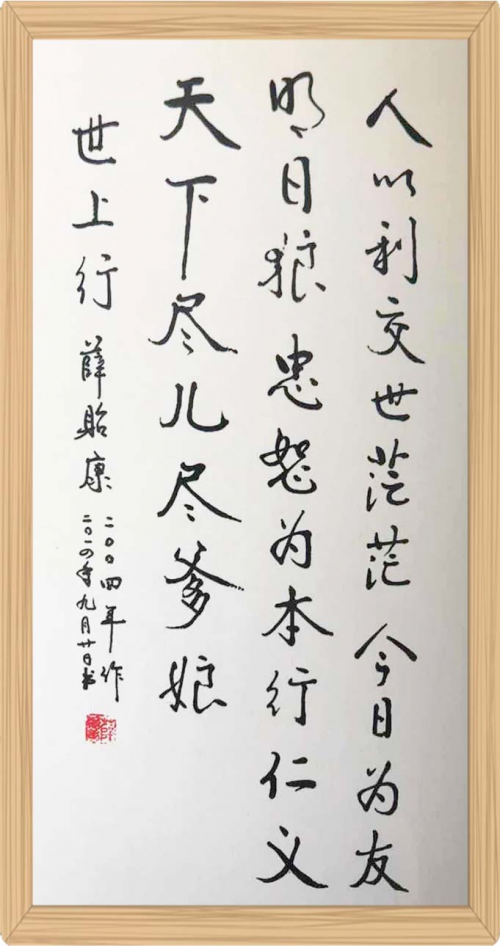 人以利交世茫茫 今日为友
明日狼 忠恕为本行仁义
天下尽儿尽爹娘
世上行 薛贻康
二〇〇四年作
二〇一四年九月廿日书